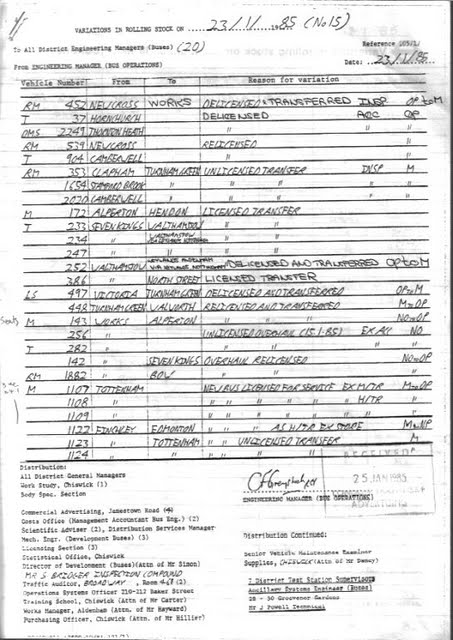 VARIATIONS IN ROLLING STOCK ON 23/1/85 (No 15)
To All District Engineering Managers (Buses) (20)
Reference 105/1/
From ENGINEERING MANAGER (BUS OPERATIONS)
Date: 23/1/85
Vehicle Number From To Reason for variation
RM 452 NEW CROSS WORKS DELICENSED & TRANSFERRED INSP OP to M
T 37 HORNCHURCH DELICENSED ACC OP
DMS 2249 THORNTON HEATH " " "
RM 539 NEW CROSS RELICENSED "
T 904 CAMBERWELL " "
RM 353 CLAPHAM TURNHAM GREEN UNLICENSED TRANSFER INSP M
1654 STAMFORD BROOK " " " "
2020 CAMBERWELL " " " "
M 172 ALPERTON HENDON LICENSED TRANSFER
T 233 SEVEN KINGS WALTHAMSTOW "
234 " WALTHAMSTOW "
247 " " "
252 WALTHAMSTOW DELICENSED AND TRANSFERRED OP to M
386 " NORTH STREET LICENSED TRANSFER
LS 497 VICTORIA TURNHAM GREEN DELICENSED AND TRANSFERRED OP to M
448 TURNHAM GREEN WALWORTH RELICENSED AND TRANSFERRED M to OP
M 143 WORKS ALPERTON " " " No to OP
256 " UNLICENSED OVERHAUL (15.1.85) EX ACC NO
T 282 " " "
142 " SEVEN KINGS OVERHAUL RELICENSED No to OP
RM 1882 " BOW " " "
M 1107 TOTTENHAM NEW BUS LICENSED FOR SERVICE EX M/TR M to OP
1108 " " " " " H/TR "
1109 " " " " " " "
1122 FINCHLEY EDMONTON " " AS H/TR EX STORE M to NP
1123 " TOTTENHAM " " UNLICENSED TRANSFER M
1124 " " " " " "
Seats
Distribution:
All District General Managers
Work Study, Chiswick (1)
Body Spec. Section
ENGINEERING MANAGER (BUS OPERATIONS)
RECEIVED
25 JAN 1985
Commercial Advertising, Jamestown Road (4)
Costs Office (Management Accountant Bus Eng.) (2)
Scientific Adviser (2), Distribution Services Manager
Mech. Engr. (Development Buses) (3)
Licensing Section (3)
Statistical Office, Chiswick
Director of Development (Buses)(Attn of Mr Simon)
MR S BRIDGER INSPECTION COMPOUND
Traffic Auditor, BROADWAY
Operations Systems Officer 210-212 Baker Street
Training School, Chiswick (Attn of Mr Carter)
Works Manager, Aldenham (Attn of Mr Hayward)
Purchasing Officer, Chiswick (Attn of Mr Hillier)
Distribution Continued:
Senior Vehicle Maintenance Examiner
Supplies, CHISWICK (Attn of Mr Dewey)
7 District Test Station Supervisors
Ancillary Systems Engineer (Buses)
28 - 30 Grosvenor Gardens
Mr J Powell Technical